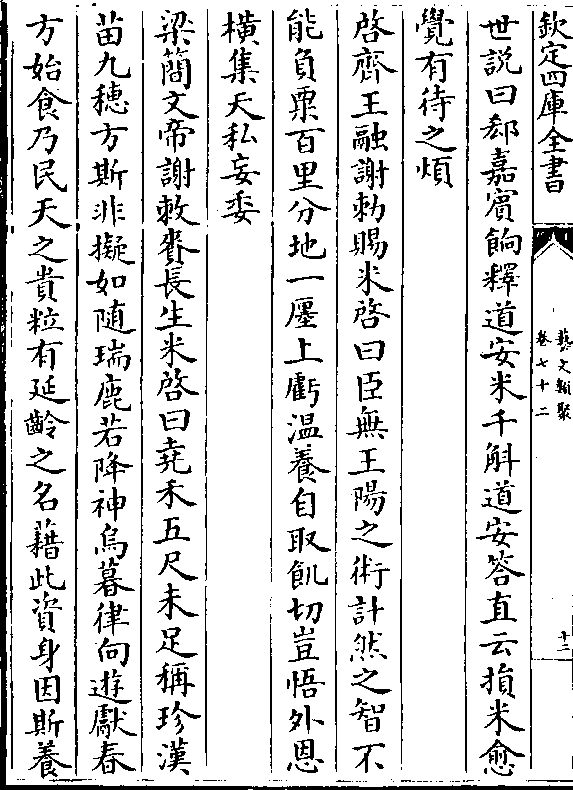 欽定四庫全書
藝文類聚
卷七十二
十二
世說曰郄嘉賓餉釋道安米千斛道安答直云損米愈
覺有待之煩
啓齊王融謝勑賜米啓曰臣無王陽之術計然之智不
能負粟百里分地一廛上虧温養自取飢切豈悟外恩
橫集天私妄委
梁簡文帝謝敕賚長生米啓曰堯禾五尺未足稱珍漢
苗九穗方斯非擬如随瑞鹿若降神烏暮律向遊獻春
方始食乃民天之貴粒有延齡之名藉此資身因斯養